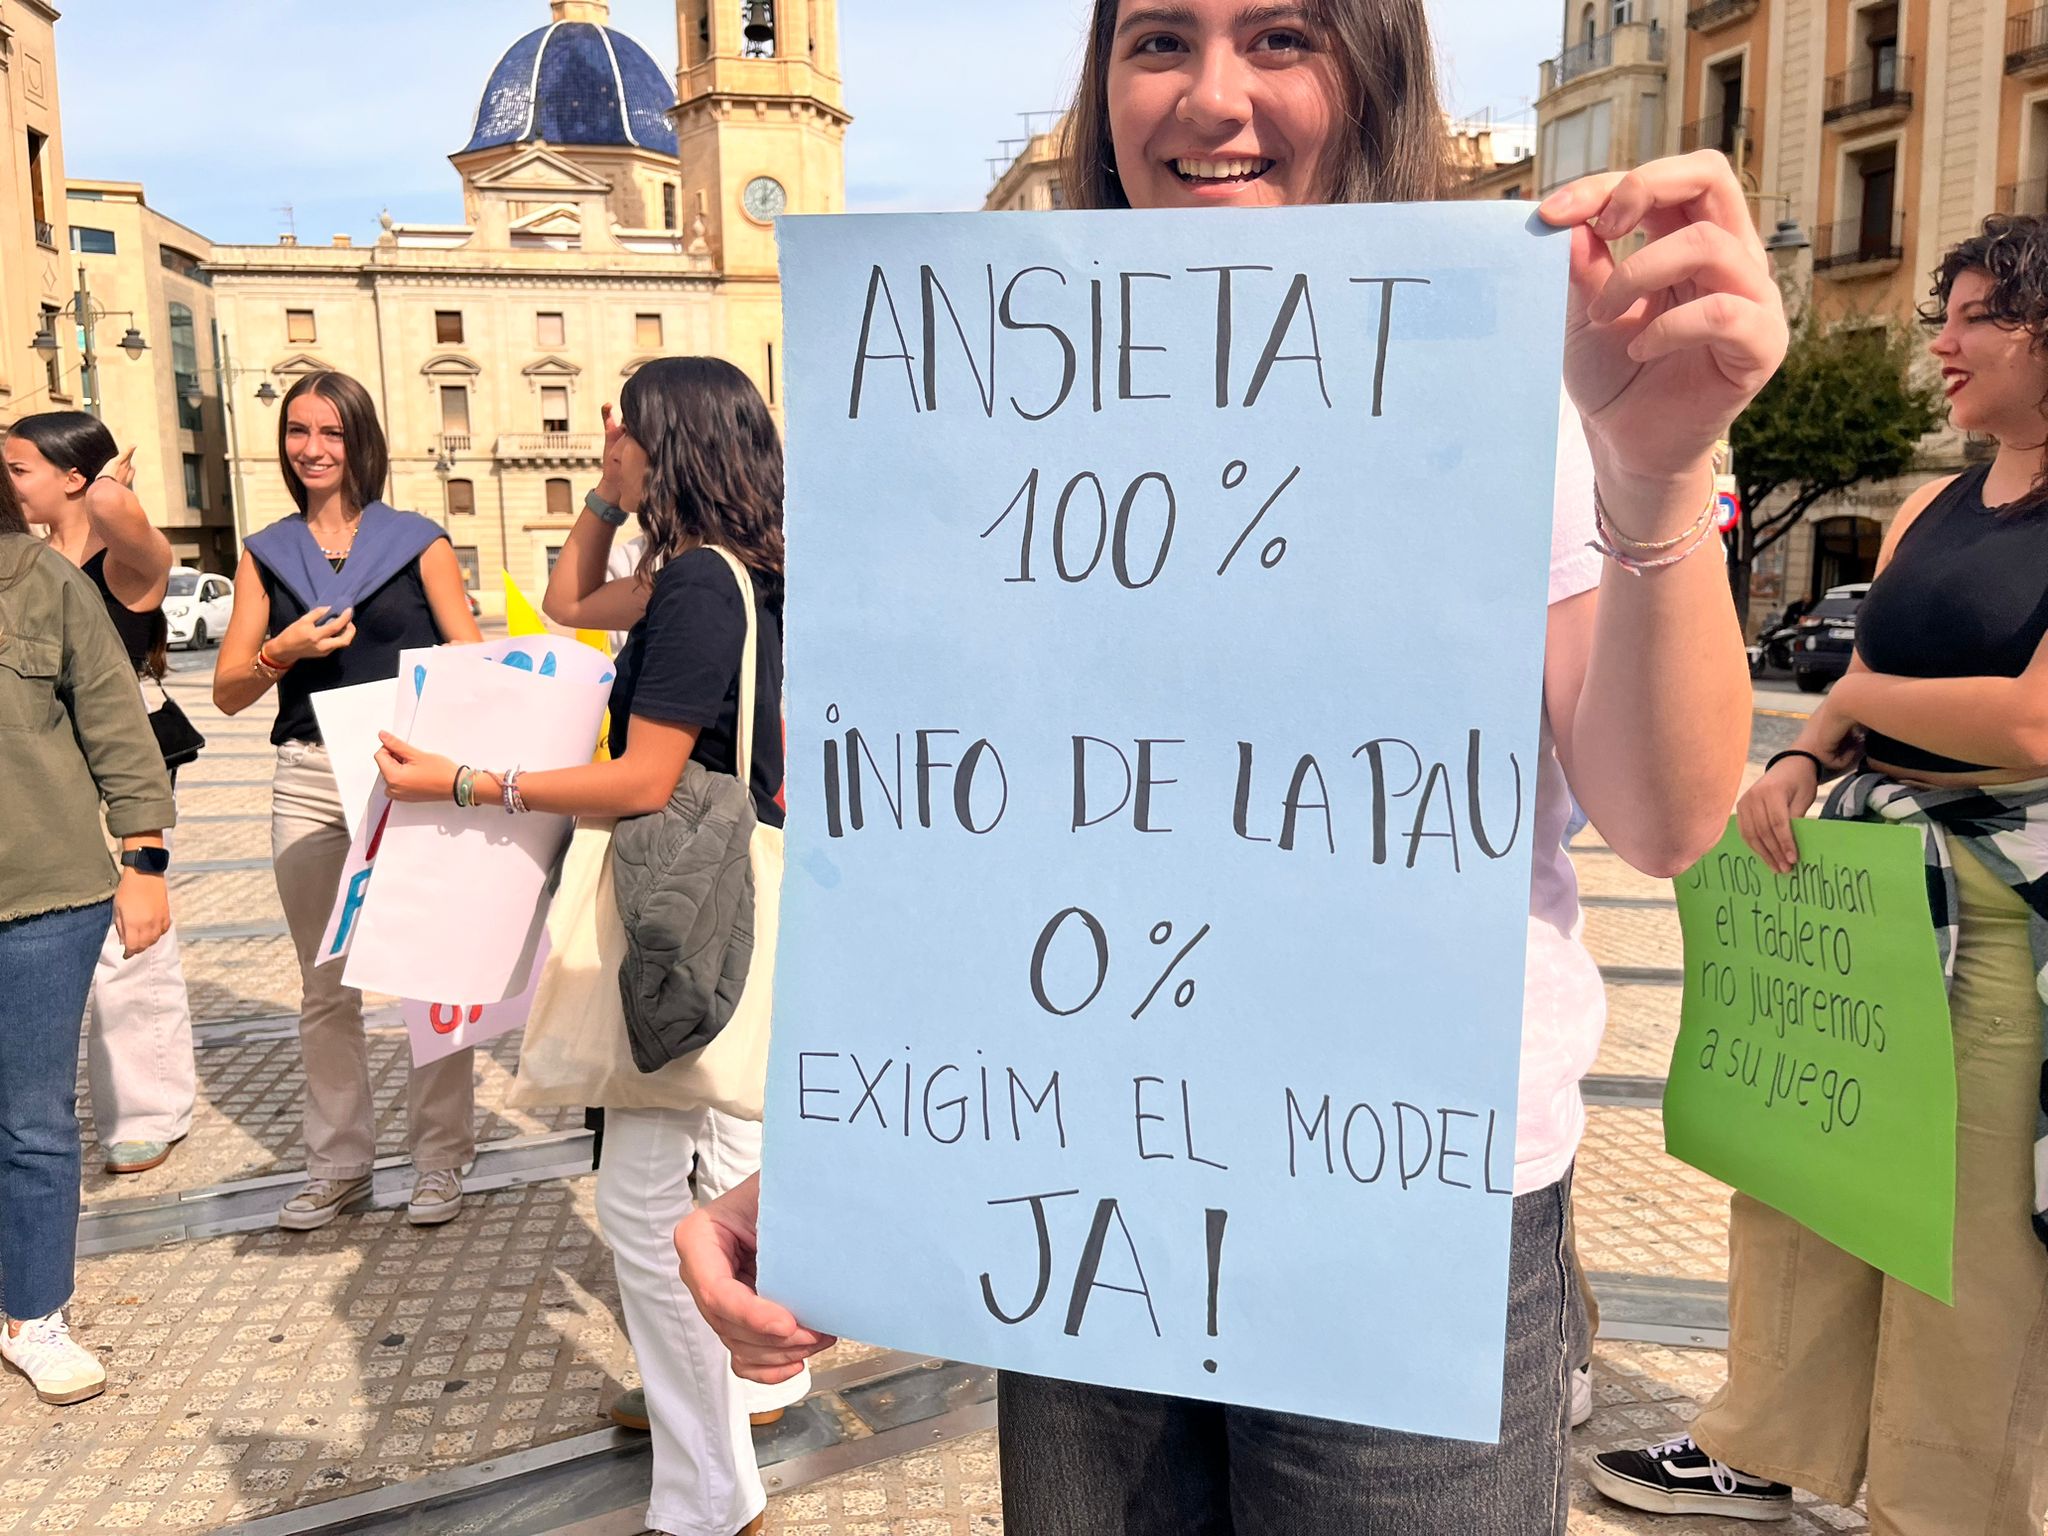 ANSIETAT
100%
INFO DE LA PAU
0%
EXIGIM EL MODEL
JA!
si nos cambian
el tablero
no jugaremos
a su juego